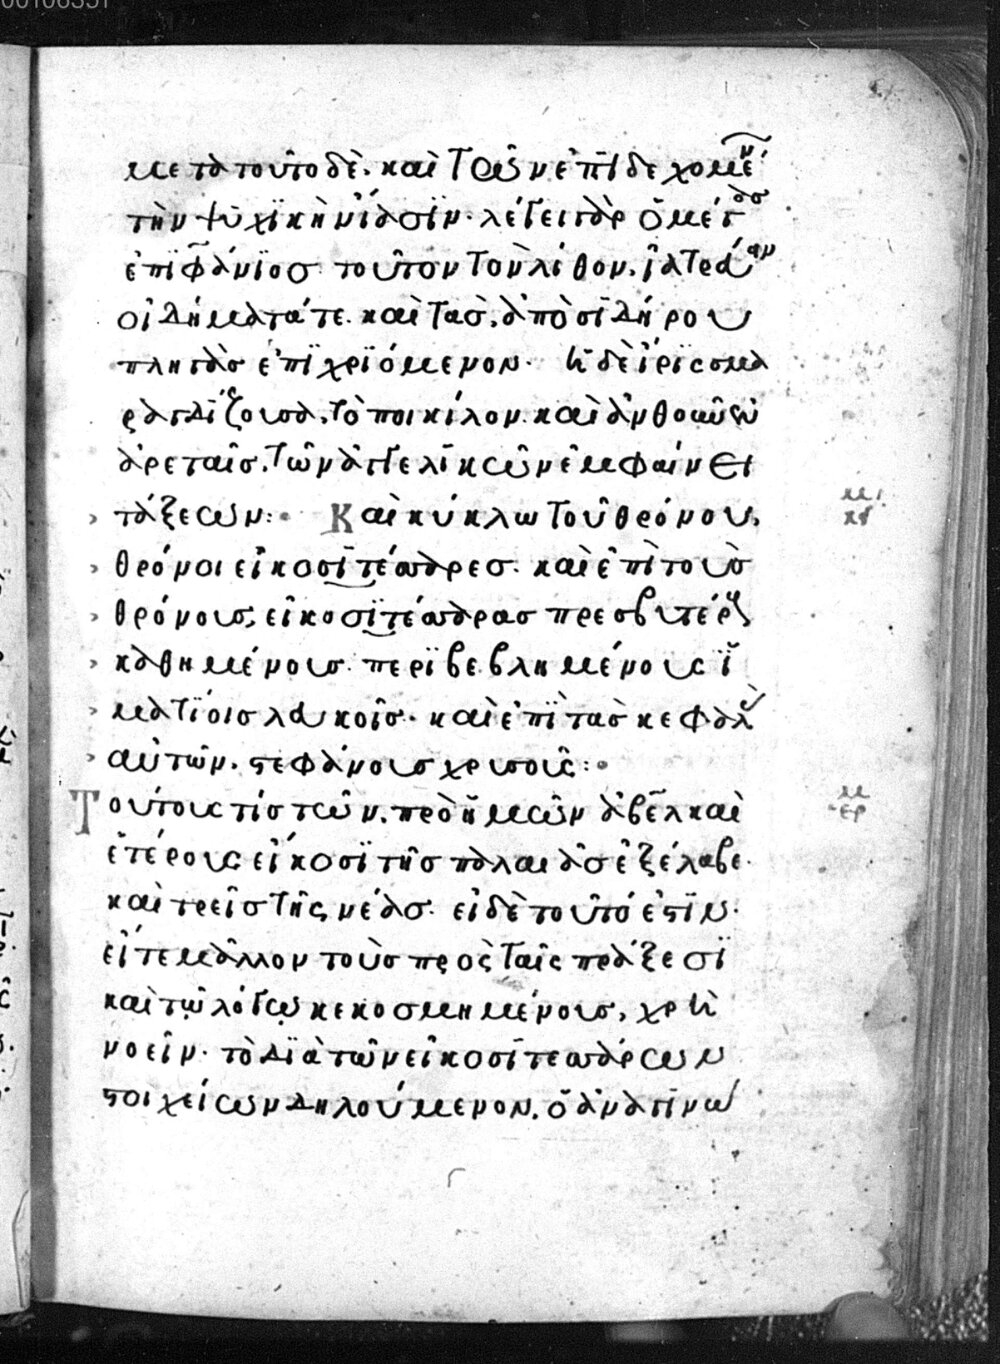 μετὰ τοῦτο δὲ. καὶ τῶν ἐπιδεχομέν
τὴν ψυχϊκὴν ἴασϊν. λέγει γὰρ ὁ μέγας
ἐπϊφάνϊος τοῦτον τὸν λίθον. ἰατρὸν
οἰδήματά τε. καὶ τὰσ. ἀπὸ σιδήρου
πληγὰσ ἐπϊχρϊόμενον. ἡ δὲ ἶρϊς σμα
ραγδίζουσα. τὸ ποικίλον. καὶ ἀνθοῦν
ἀρεταῖσ. τῶν ἀγγελϊκῶν ἐμφαίνει
τάξεων: Καὶ κύκλω τοῦ θρόνου.
θρόνοι εἰκοσϊτέσσαρεσ. καὶ ἐπὶ τοὺσ
θρόνουσ, εἰκοσϊτέσσαρασ πρεσβυτέρους
καθημένουσ. περϊβεβλημένους ἱ
ματϊοισ λευκοῖσ. καὶ ἐπϊ τὰσ κεφαλὰς
αὐτῶν. στεφάνουσ χρυσοῦς:
Τούτους τίσ τῶν. πρὸ ἡμῶν ἄβελ καὶ
ἑτέρους εἴκοσϊ τῆσ παλαιᾶσ ἐξέλαβε.
καὶ τρεῖσ τῆς νέασ. εἰ δὲ τοῦτό ἐστϊν.
εἴτε μᾶλλον τοὺσ πρὸς ταῖς πράξεσϊ
καὶ τῷ λόγῳ κεκοσμημένουσ, χρὴ
νοεῖν. τὸ δϊὰ τῶν εἰκοσϊτεσσάρων
στοιχείων δηλούμενον. ὁ ἀναγϊνω